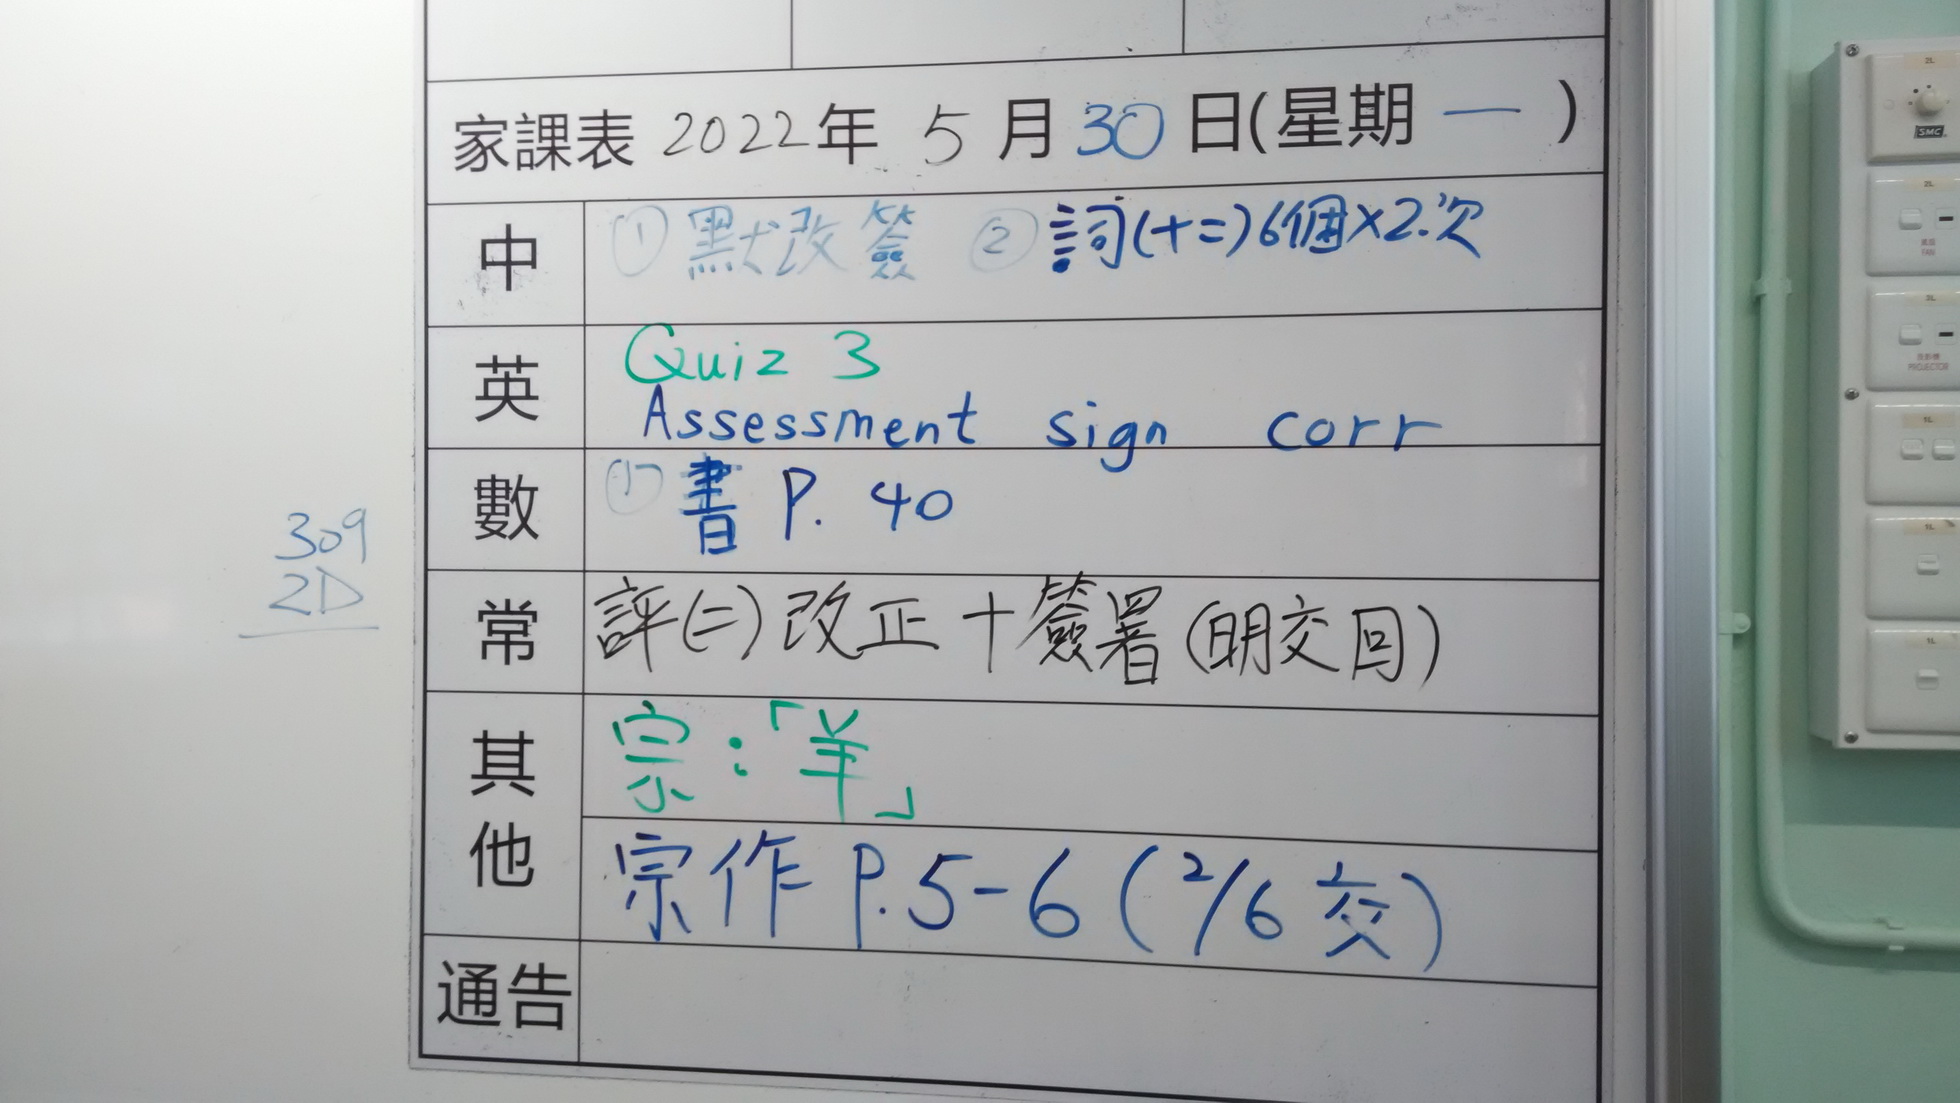 家課表 2022年 5月30日(星期一)
中 ① 默改簽 ② 詞(十二)6個×2次
英 Quiz 3
Assessment sign corr
數 ① 書 P. 40
常 評(二)改正+簽署(明交回)
其他 宗:「羊」
宗作 P.5-6 (2/6 交)
通告
309
2D
2L
SMC
2L
FAN
3L
PROJECTOR
1L
1L
1L